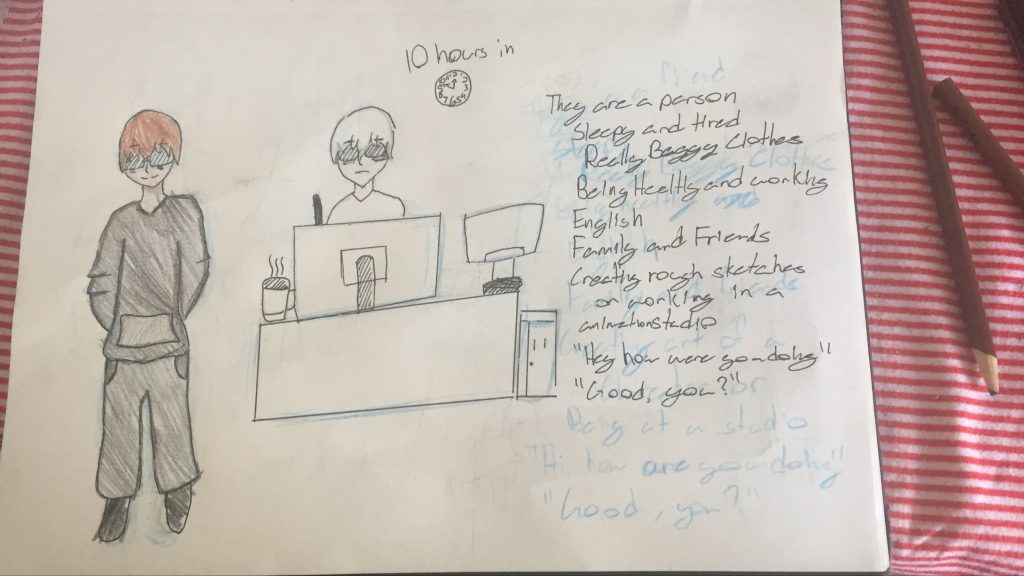 10 hours in
They are a person
Sleepy and tired
Really Baggy Clothes
Being Healthy and working
English
Family and Friends
Creating rough sketches
on working in a
animation studio
"Hey how were you doing"
"Good, you?"
friend
Being at a studio
"Hi, how are you doing"
"Good, you?"